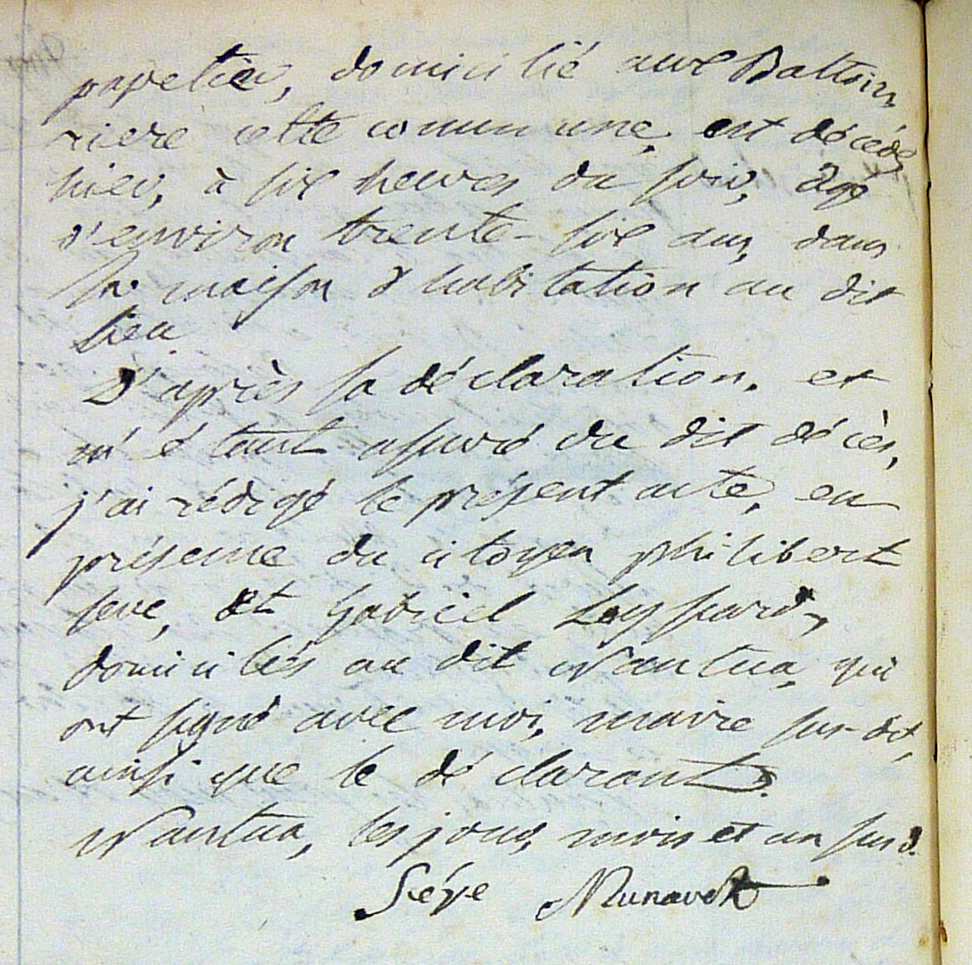 papetier, domicilié aux Battoirs
riere cette commune, est décédé
hier, à six heures du soir, âgé
d'environ trente-six ans, dans
sa maison d'habitation au dit
lieu
D'après sa déclaration, et
m'étant assuré du dit décès,
j'ai rédigé le présent acte, en
présence du citoyen philibert
seve, et Gabriel
domiciliés au dit Nantua, qui
ont signé avec moi, maire sus-dit,
ainsi que le déclarant.
Nantua, les jour, mois et an susd.
Séve